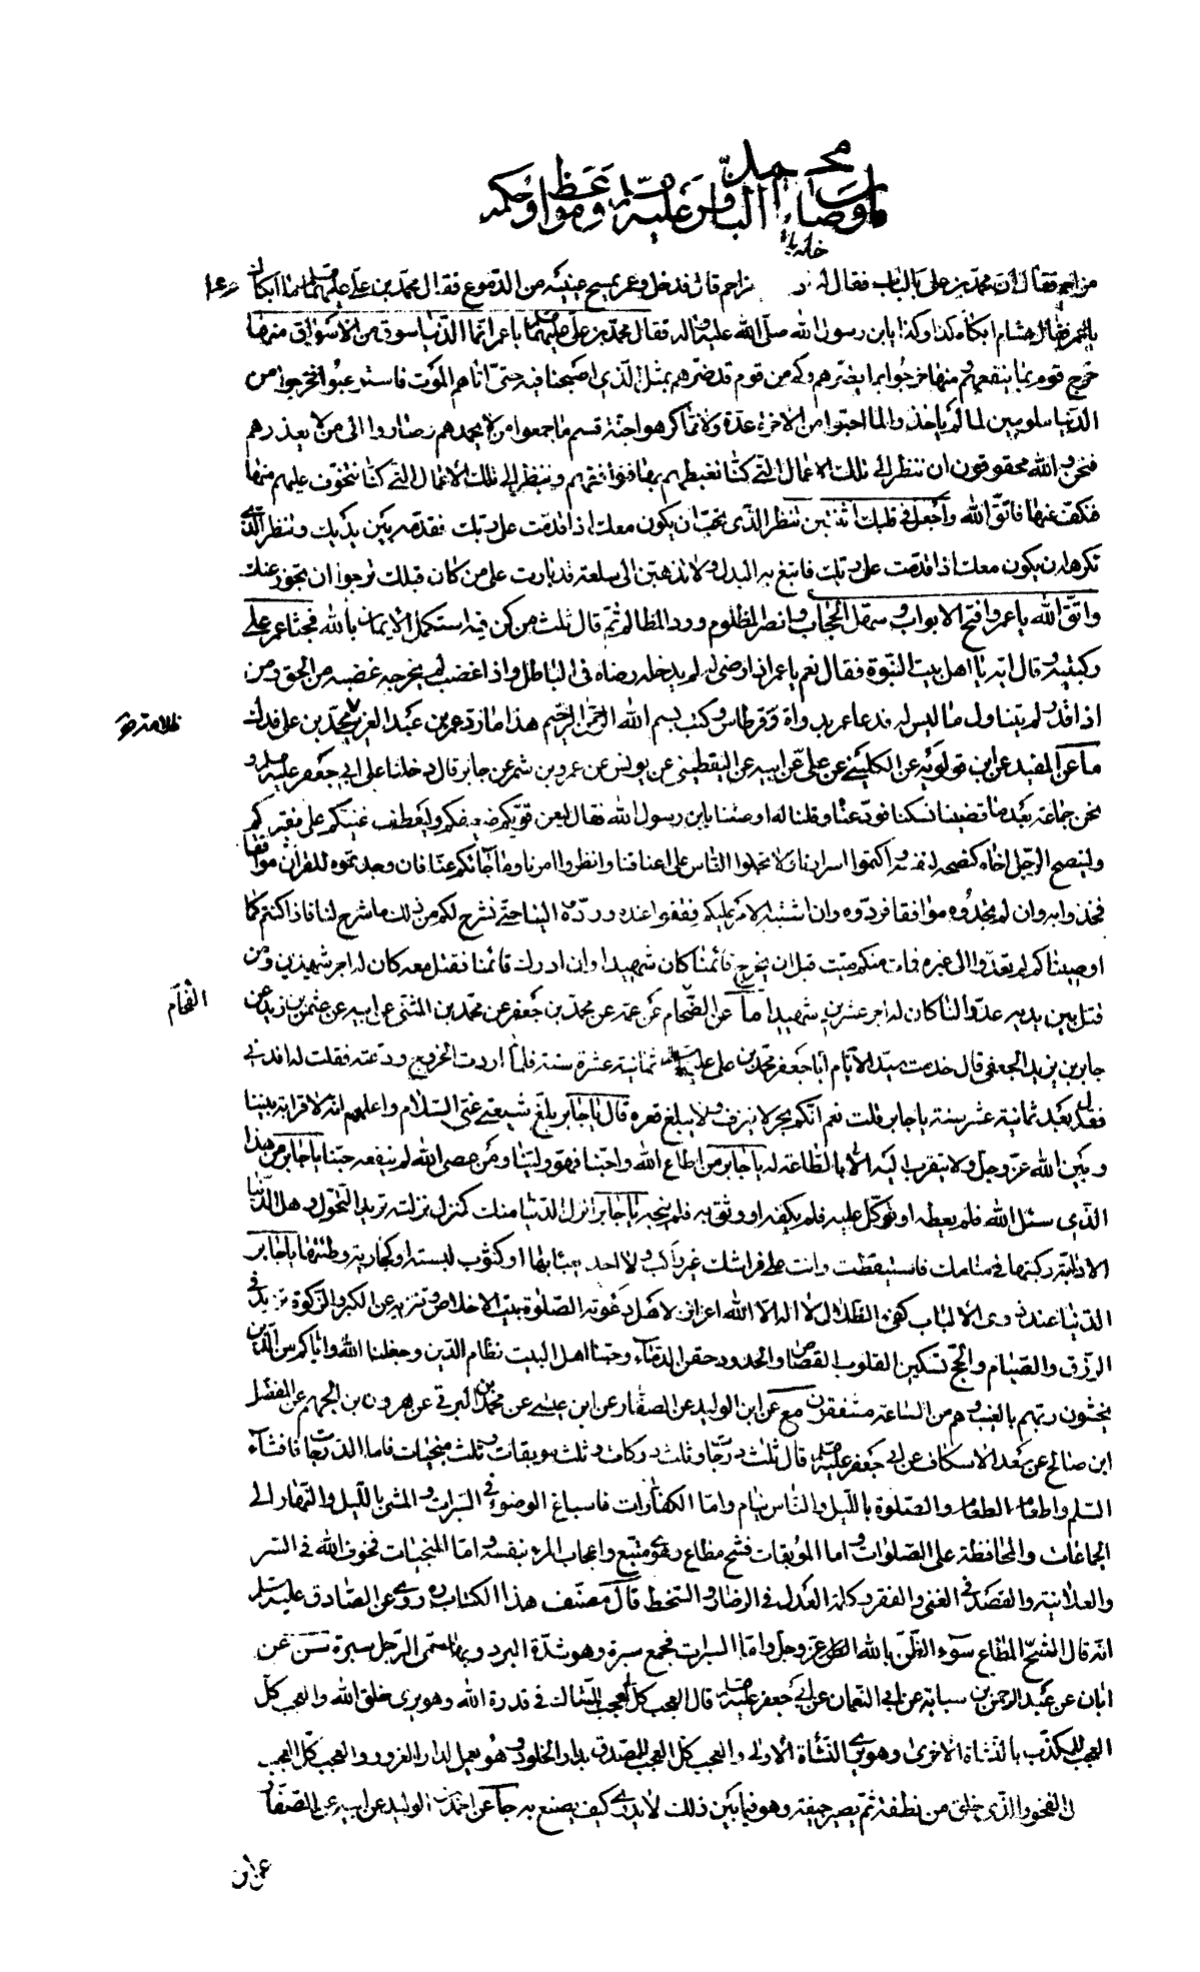 محمد
باب وصايا الباقر عليه السلام ومواعظه وحكمه
مزاحم فقال ان محمد بن على بالباب فقال له مزاحم قال فدخل وعمر يمسح عينيه من الدموع فقال محمد بن على عليهما السلام ما ابكاك
يا عمر فقال هشام ابكاه كذا وكذا يابن رسول الله صلى الله عليه واله فقال محمد بن على عليهما السلام يا عمر انما الدنيا سوق من الاسواق منها
خرج قوم بما ينفعهم ومنها خرجوا بما يضرهم وكم من قوم قد ضرهم بمثل الذى اصبحنا فيه حتى اتاهم الموت فاستوعبوا فخرجوا من
الدنيا ملومين لما لم ياخذوا لما احبوا من الاخرة عدة ولا مما كرهوا جنة قسم ما جمعوا من لا يحمدهم وصاروا الى من لا يعذرهم
فنحن والله محقوقون ان ننظر الى تلك الاعمال التى كنا نغبطهم بها فنوافقهم وننظر الى تلك الاعمال التى كنا نتخوف عليهم منها
فنكف عنها فاتق الله واجعل فى قلبك اثنتين تنظر الذى تحب ان يكون معك اذا قدمت على ربك فقدمه بين يديك وتنظر الذى
تكرهه ان يكون معك اذا قدمت على ربك فابتغ به البدل ولا تذهبن الى سلعة قد بارت على من كان قبلك ترجوا ان تجوز عنك
واتق الله يا عمر وافتح الابواب وسهل الحجاب وانصر المظلوم ورد المظالم ثم قال ثلث من كن فيه استكمل الايمان بالله فجثا عمر على
ركبتيه وقال ايه يا اهل بيت النبوة فقال نعم يا عمر اذا رضى لم يدخله رضاه فى الباطل واذا غضب لم يخرجه غضبه من الحق ومن
اذا قدر لم يتناول ما ليس له فدعا عمر بدواة وقرطاس وكتب بسم الله الرحمن الرحيم هذا ما رد عمر بن عبد العزيز ظلامة محمد بن على فدك
ما عن المفيد عن ابن قولويه عن الكلينى عن على عن ابيه عن اليقطينى عن يونس عن عمرو بن شمر عن جابر قال دخلنا على ابى جعفر عليه السلام و
نحن جماعة بعد ما قضينا نسكنا فودعنا وقلنا له اوصنا يابن رسول الله فقال ليعن قويكم ضعيفكم وليعطف غنيكم على فقيركم
ولينصح الرجل اخاه كنصحه لنفسه واكتموا اسرارنا ولا تحملوا الناس على اعناقنا وانظروا امرنا وما جائكم عنا فان وجدتموه للقران موافقا
فخذوا به وان لم تجدوه موافقا فردوه وان اشتبه الامر عليكم فقفوا عنده وردوه الينا حتى نشرح لكم من ذلك ما شرح لنا فاذا كنتم كما
اوصيناكم لم تعدوا الى غيره فمات منكم ميت قبل ان يخرج قائمنا كان شهيدا وان ادرك قائمنا فقتل معه كان له اجر شهيدين ومن
قتل بين يديه عدوا لنا كان له اجر عشرين شهيدا ما عن الفحام عن عمه عن محمد بن جعفر عن محمد بن المثنى عن ابيه عن عثمن بن زيد عن
جابر بن يزيد الجعفى قال خدمت سيد الانام ابا جعفر محمد بن على عليه السلام ثمانية عشرة سنة فلما اردت الخروج ودعته فقلت له افدنى
فقال بعد ثمانية عشر سنة يا جابر قلت نعم انكم بحر لا ينزف ولا يبلغ قعره قال يا جابر بلغ شيعتى عنى السلام واعلمهم انه لا قرابة بيننا
وبين الله عز وجل ولا يتقرب اليه الا بالطاعة له يا جابر من اطاع الله واحبنا فهو ولينا ومن عصى الله لم ينفعه حبنا يا جابر من هذا
الذى سئل الله فلم يعطه او توكل عليه فلم يكفه او وثق به فلم ينجه يا جابر انزل الدنيا منك كمنزل نزلته تريد التحول وهل الدنيا
الا دابة ركبتها فى منامك فاستيقظت وانت على فراشك غير راكب ولا احد يعبا بها او كثوب لبسته او كجارية وطئتها يا جابر
الدنيا عند ذوى الالباب كفئ الظلال لا اله الا الله اعزاز لاهل دعوته الصلوة بيت الاخلاص وتنزيه عن الكبر والزكوة تزيد فى
الرزق والصيام والحج تسكين القلوب القصاص والحدود حقن الدماء وحبنا اهل البيت نظام الدين وجعلنا الله واياكم من الذين
يخشون ربهم بالغيب وهم من الساعة مشفقون مع عن ابن الوليد عن الصفار عن ابن عيسى عن محمد البرقى عن هرون بن الجهم عن المفضل
ابن صالح عن سعد الاسكاف عن ابى جعفر عليه السلام قال ثلث درجات وثلث دركات وثلث موبقات وثلث منجيات فاما الدرجات فافشاء
السلم واطعام الطعام والصلوة بالليل والناس نيام واما الكفارات فاسباغ الوضوء فى السبرات والمشى بالليل والنهار الى
الجماعات والمحافظة على الصلوات واما الموبقات فشح مطاع وهوى متبع واعجاب المرء بنفسه واما المنجيات فخوف الله فى السر
والعلانية والقصد فى الغنى والفقر وكلمة العدل فى الرضا والسخط قال مصنف هذا الكتاب ره روى عن الصادق عليه السلام
انه قال الشح المطاع سوء الظن بالله عز وجل واما السبرات فجمع سبرة وهو شدة البرد وبها سمى الرجل سبرة سن عن
ابان عن عبد الرحمن بن سيابة عن ابى النعمان عن ابى جعفر عليه السلام قال العجب كل العجب للشاك فى قدرة الله وهو يرى خلق الله والعجب كل
العجب للمكذب بالنشاة الاخرى وهو يرى النشأة الاولى والعجب كل العجب للمصدق بدار الخلود وهو يعمل لدار الغرور والعجب كل العجب
للمختال الفخور الذى خلق من نطفة ثم يصير جيفة وهو فيما بين ذلك لا يدرى كيف يصنع به جا عن احمد بن الوليد عن ابيه عن الصفار
ظلامة
الفحام